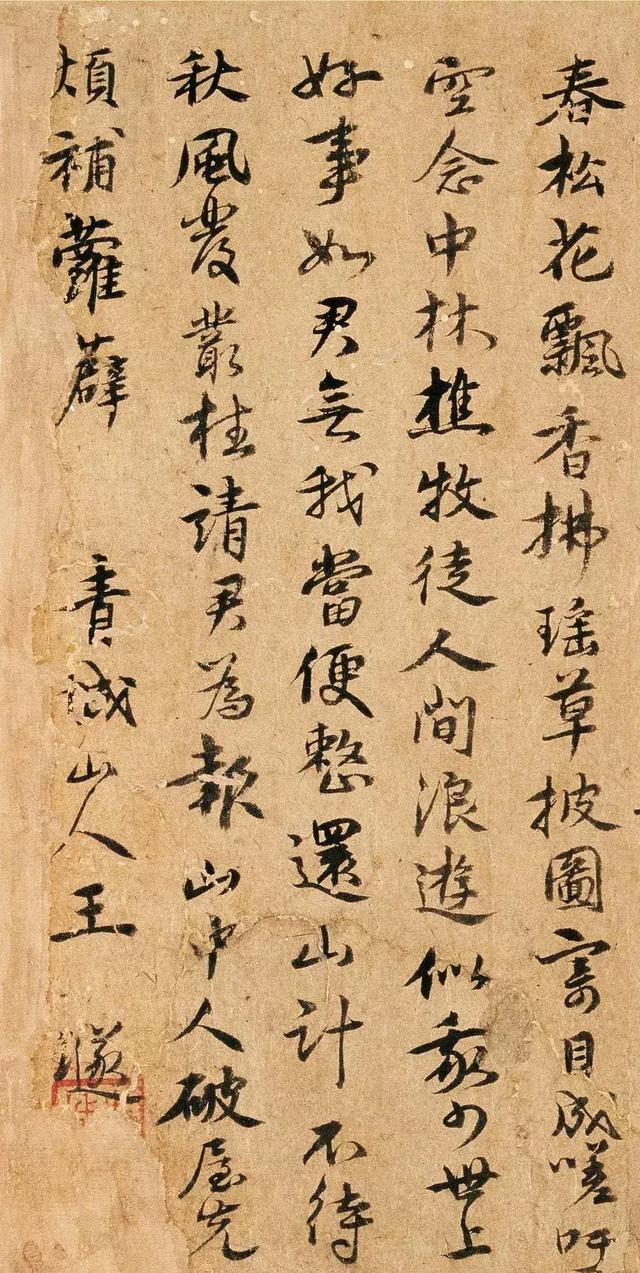 春松花飄香拂瑶草披圖寄目成嗟吁
空念中林樵牧徒人間浪遊似我少世上
好事如君無我當便整還山計不待
秋風發叢桂請君為報山中人破屋先
煩補蘿薜 青城山人王遂